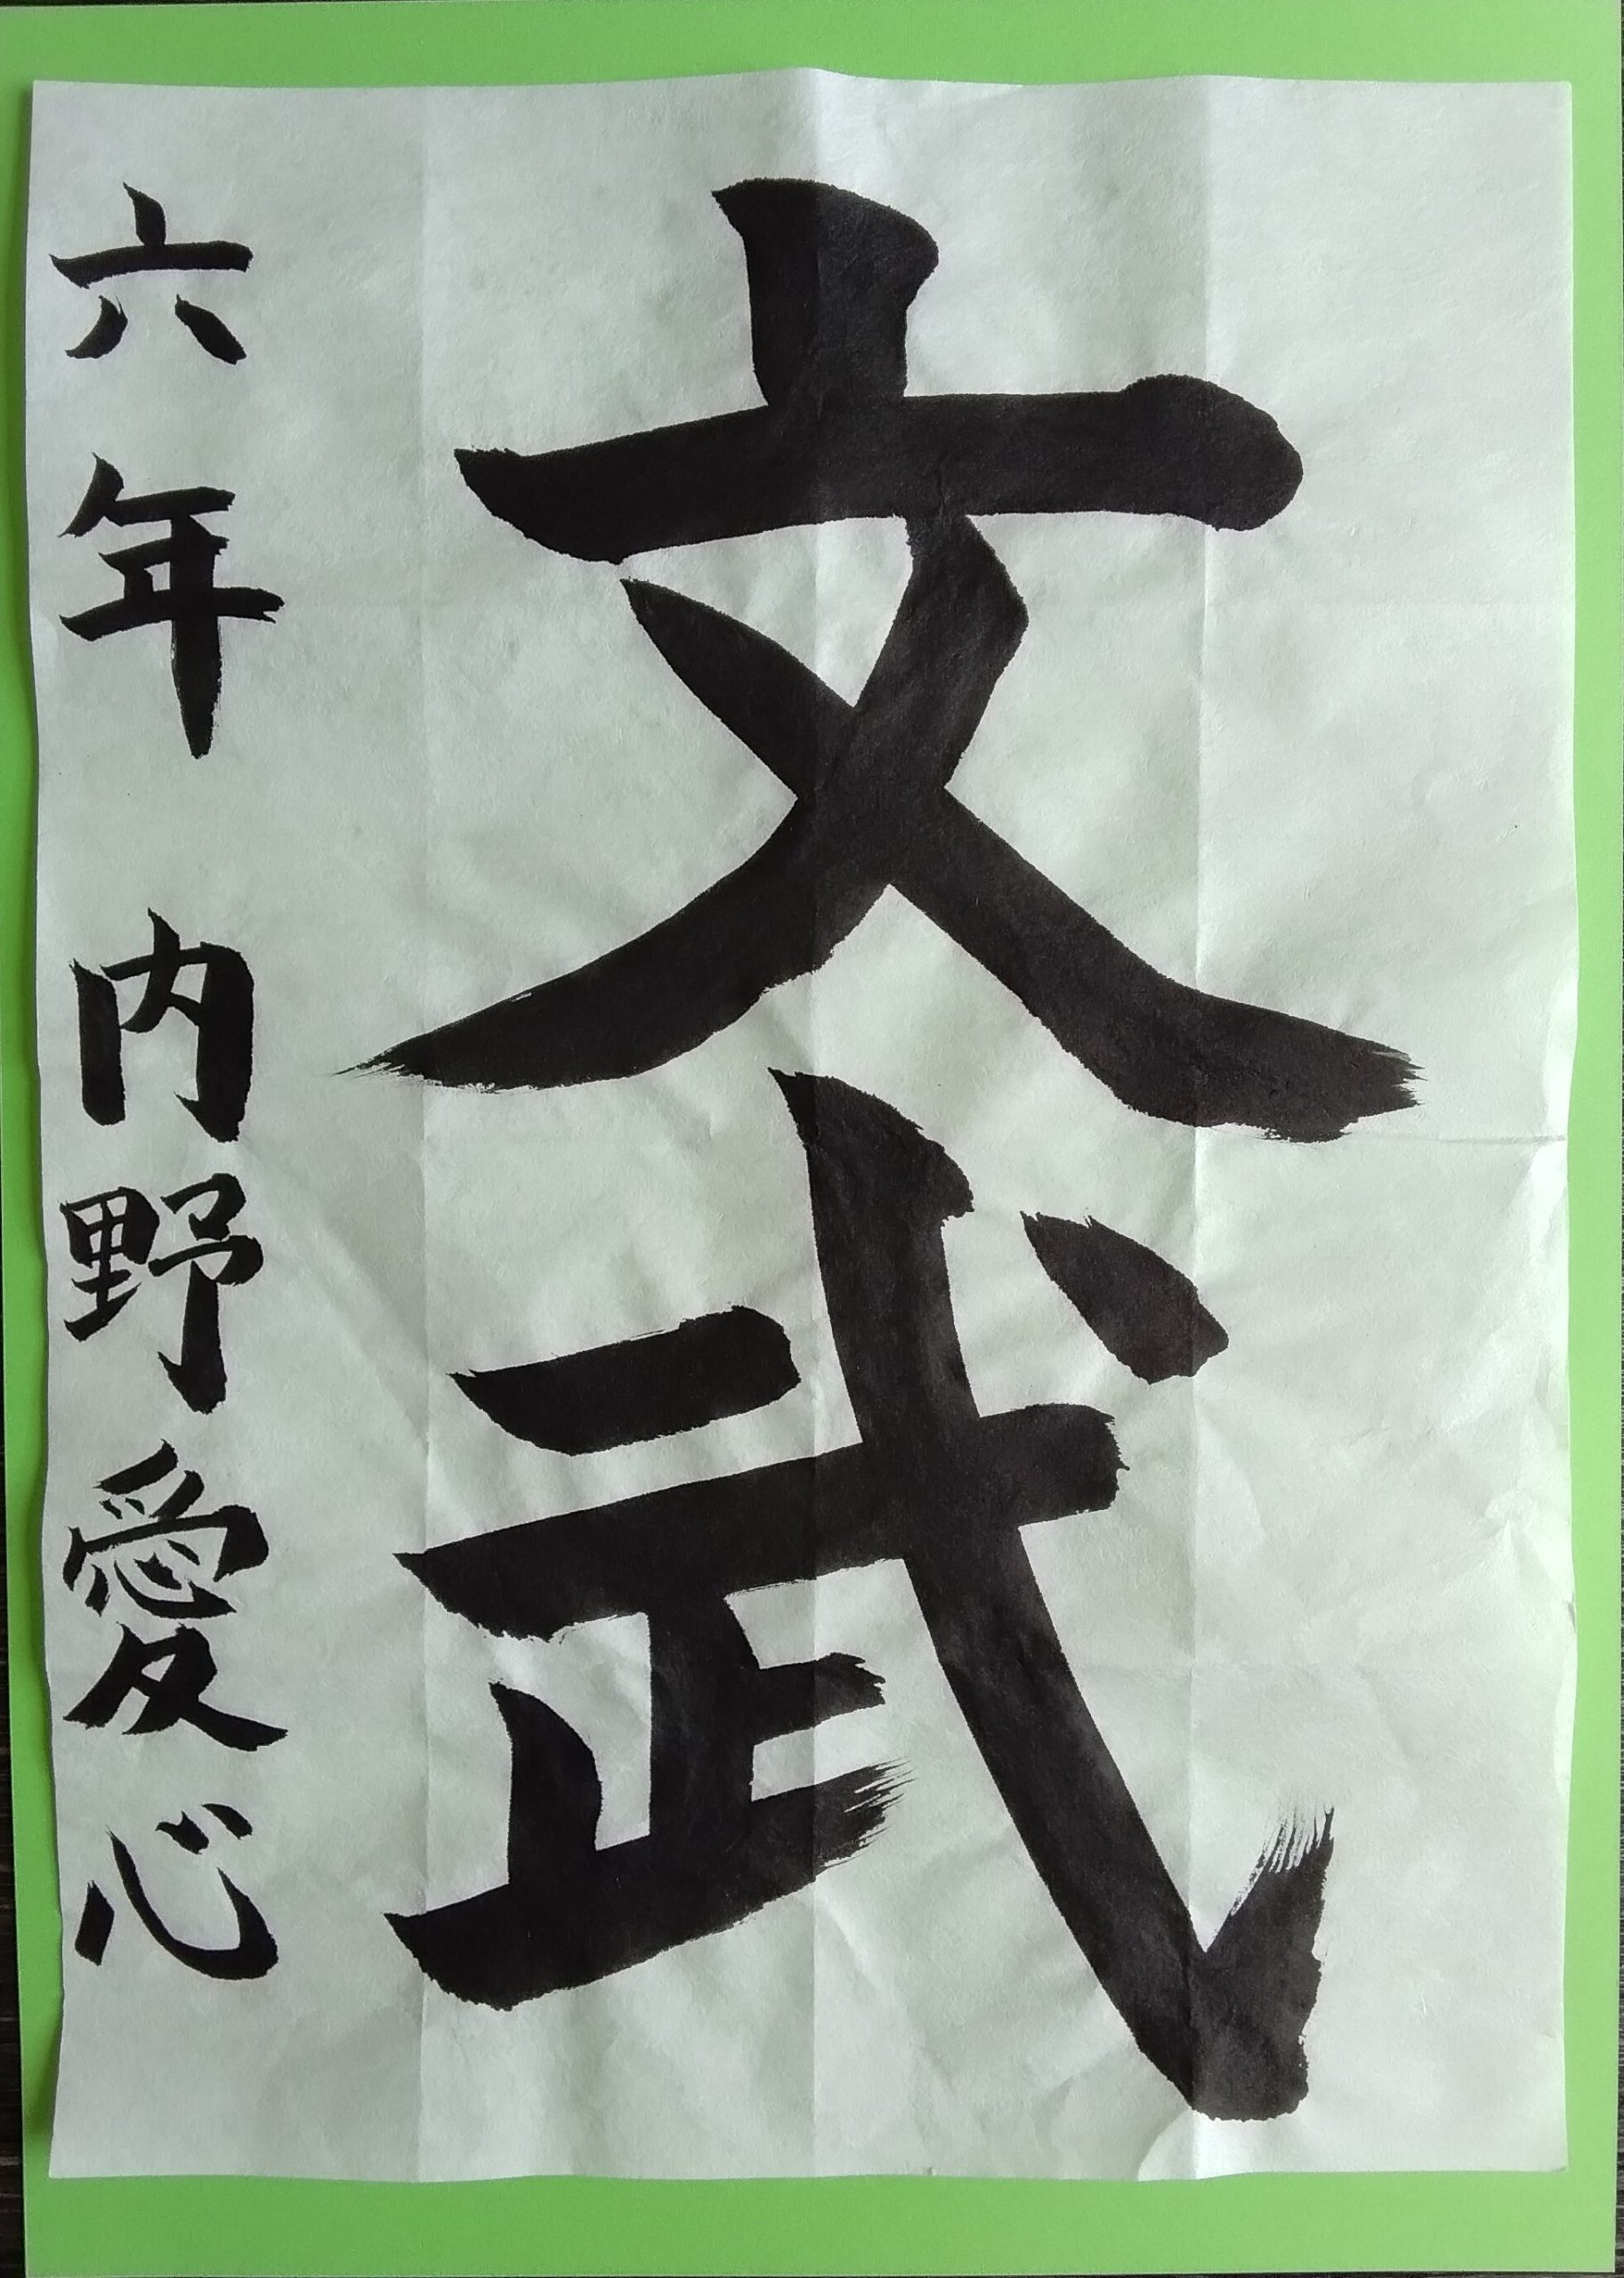 文武
六年 内野愛心